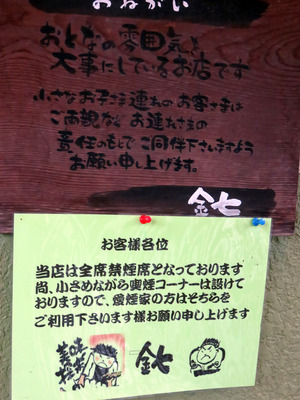 おねがい
おとなの雰囲気を
大事にしているお店です
小さなお子さま連れのお客さまは
ご両親など お連れさまの
責任のもとで ご同伴下さいますよう
お願い申し上げます。
金七
お客様各位
当店は全席禁煙席となっております
尚、小さめながら喫煙コーナーは設けて
おりますので、愛煙家の方はそちらを
ご利用下さいます様お願い申し上げます
金七